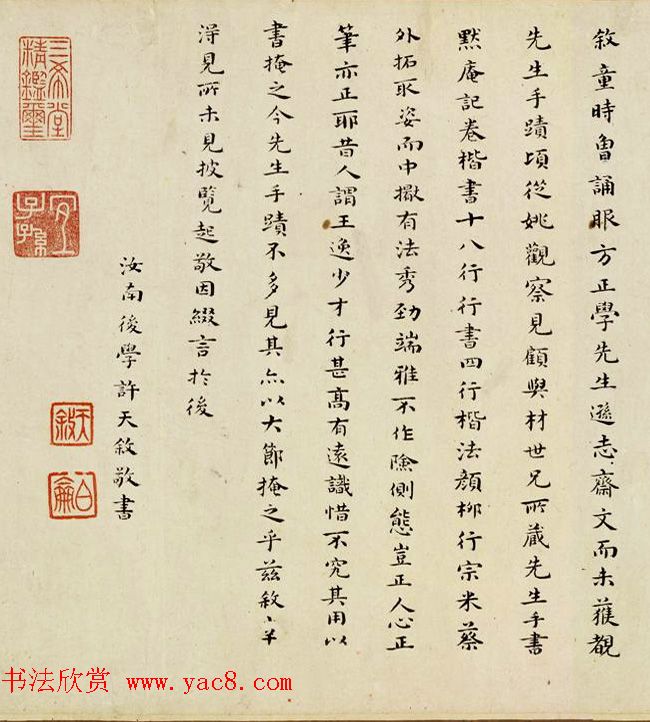 敘童時曾誦服方正學先生遜志齋文而未獲覩
先生手蹟頃從姚觀察見顧與材世兄所藏先生手書
黙庵記卷楷書十八行行書四行楷法顔柳行宗米蔡
外拓取姿而中擫有法秀勁端雅不作險側態豈正人心正
筆亦正耶昔人謂王逸少才行甚髙有遠識惜不究其用以
書掩之今先生手蹟不多見其亦以大節掩之乎兹敘
得見所未見披覽起敬因綴言於後
汝南後學許天敘敬書
三希堂精鑑璽
宜子孫
天敘
书法欣赏 www.yac8.com